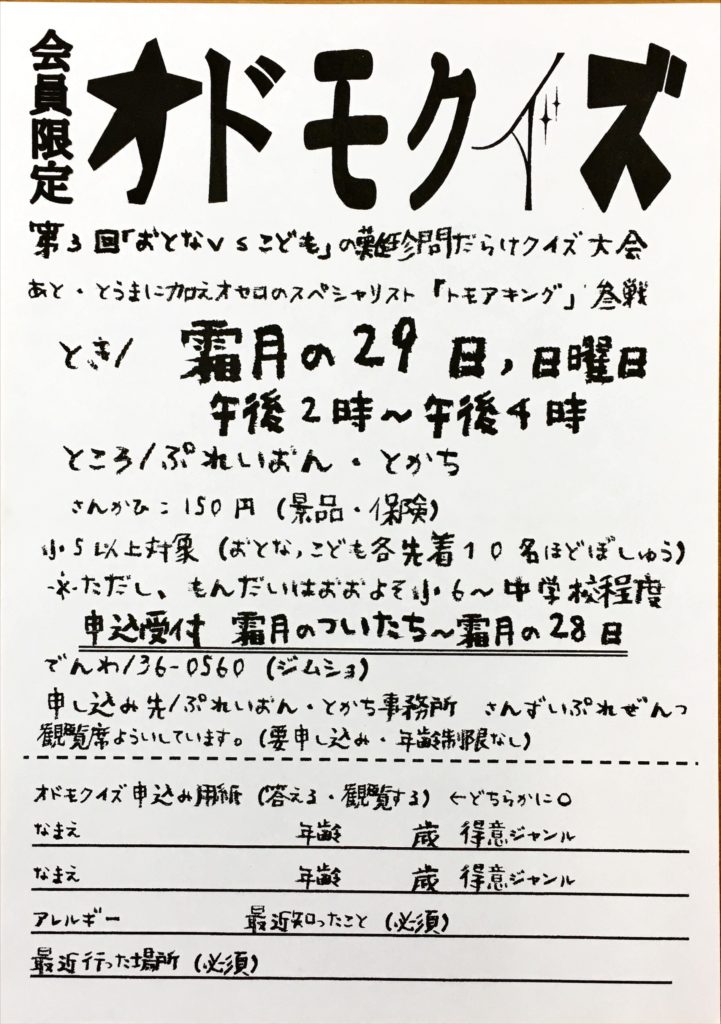 会員限定
オドモクイズ
第3回「おとなVSこども」の難珍問だらけクイズ大会
あと・とうまに加えオセロのスペシャリスト「トモアキング」参戦
とき/ 霜月の29日,日曜日
午後2時～午後4時
ところ/ぷれいおん・とかち
さんかひ:150円(景品・保険)
小5以上対象(おとなっこども各先着10名ほどぼしゅう)
※ただし、もんだいはおおよそ小6～中学校程度
申込受付 霜月のついたち～霜月の28日
でんわ/36-0560(ジムショ)
申し込み先/ぷれいおん・とかち事務所 さんずいぷれぜんつ
観覧席よういしています。(要申し込み・年齢制限なし)
オドモクイズ申込み用紙(答える・観覧する)←どちらかに○
なまえ 年齢 歳 得意ジャンル
なまえ 年齢 歳 得意ジャンル
アレルギー 最近知ったこと(必須)
最近行った場所(必須)